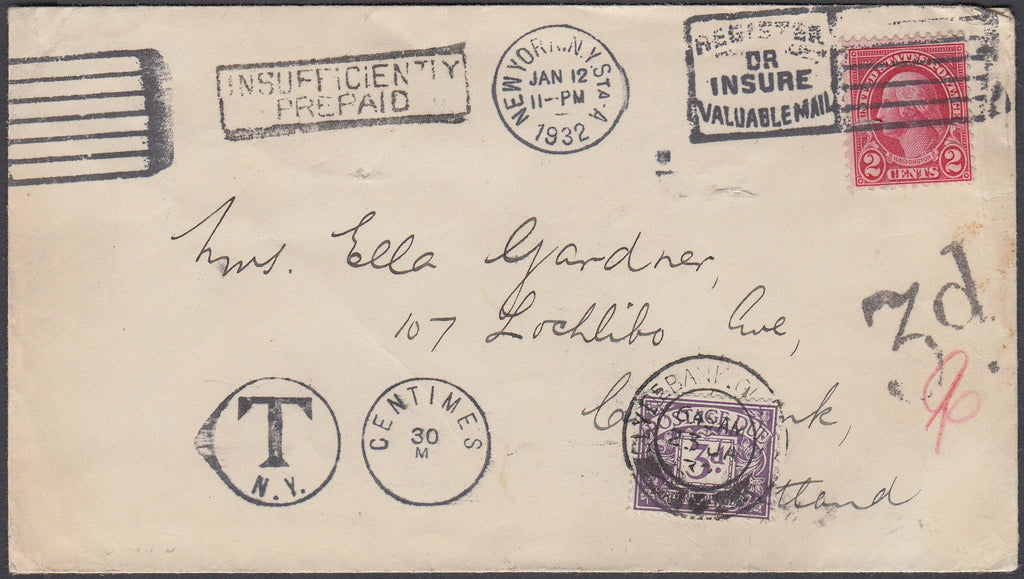 INSUFFICIENTLY
PREPAID
NEW YORK, N.Y. STA. A
JAN 12
11-PM
1932
REGISTER
OR
INSURE
VALUABLE MAIL
WASHINGTON
2 CENTS 2
Mrs. Ella Gardner,
107 Lochlibo Ave,
3d.
T
N.Y.
CENTIMES
30
M
POSTAGE DUE
3d